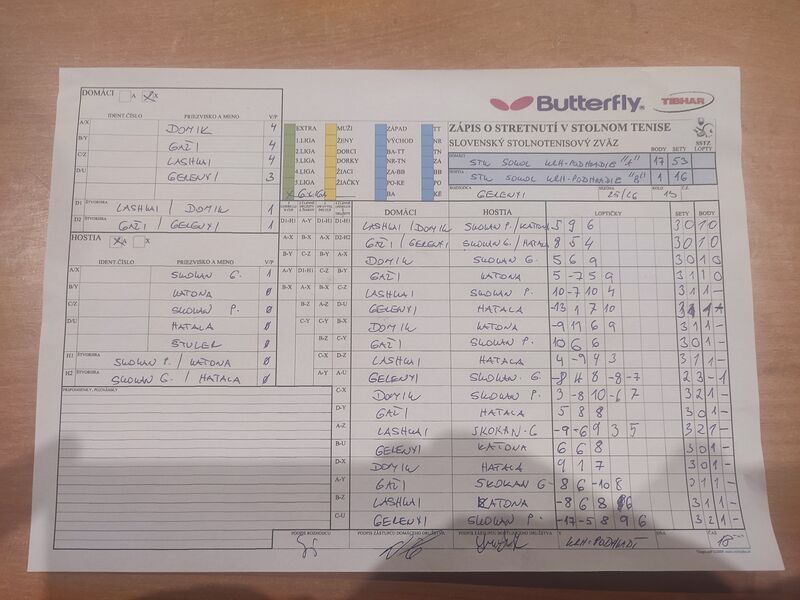 DOMÁCI A X
Butterfly TIBHAR
IDENT.ČÍSLO PRIEZVISKO A MENO V/P
A/X DOMIK 4
B/Y GAŠI 4
C/Z LASHKI 4
D/U GELENYI 3
D1 ŠTVORHRA LASHKI / DOMIK 1
D2 GAŠI / GELENYI 1
HOSTIA A X
IDENT.ČÍSLO PRIEZVISKO A MENO V/P
A/X SKOKAN G. 1
B/Y KATONA 0
C/Z SKOKAN P. 0
D/U HATALA 0
ŠTULER 0
H1 ŠTVORHRA SKOKAN P. / KATONA 0
H2 SKOKAN G. / HATALA 0
PRIPOMIENKY, POZNÁMKY
EXTRA MUŽI ZÁPAD TT
1.LIGA ŽENY VÝCHOD NR
2.LIGA DORCI BA-TT TN
3.LIGA DORKY NR-TN ZA
4.LIGA ŽIACI ZA-BB BB
5.LIGA ŽIAČKY PO-KE PO
X 6.LIGA BA KE
ZÁPIS O STRETNUTÍ V STOLNOM TENISE
SLOVENSKÝ STOLNOTENISOVÝ ZVÄZ
SSTZ
BODY SETY LOPTY
DOMÁCI STK SOKOL KRH-PODHRADIE "A" 17 53
HOSTIA STK SOKOL KRH-PODHRADIE "B" 1 16
ROZHODCA GELENYI SEZÓNA 25/26 KOLO 13 Č.Z.
DOMÁCI HOSTIA LOPTIČKY SETY BODY
LASHKI / DOMIK SKOKAN P. / KATONA 5 9 6 3 0 1 0
GAŠI / GELENYI SKOKAN G. / HATALA 8 5 4 3 0 1 0
DOMIK SKOKAN G. 5 6 9 3 0 1 0
GAŠI KATONA 5 -7 5 9 3 1 1 0
LASHKI SKOKAN P. 10 -7 10 4 3 1 1 -
GELENYI HATALA -13 1 7 10 3 1 1 -
DOMIK KATONA -9 11 6 9 3 1 1 -
GAŠI SKOKAN P. 10 6 6 3 0 1 -
LASHKI HATALA 4 -9 4 3 3 1 1 -
GELENYI SKOKAN G. -8 4 8 -8 -7 2 3 - 1
DOMIK SKOKAN P. 3 -8 10 -6 7 3 2 1 -
GAŠI HATALA 5 8 8 3 0 1 -
LASHKI SKOKAN G -9 -6 9 3 5 3 2 1 -
GELENYI KATONA 6 6 8 3 0 1 -
DOMIK HATALA 9 1 7 3 0 1 -
GAŠI SKOKAN G -8 6 -10 8
LASHKI KATONA -8 6 8 6 3 1 1 -
GELENYI SKOKAN P. -17 -5 8 9 6 3 2 1 -
PODPIS ROZHODCU PODPIS ZÁSTUPCU DOMÁCEHO DRUŽSTVA PODPIS ZÁSTUPCU HOSŤUJÚCEHO DRUŽSTVA V KRH-PODHRADÍ DŇA ČAS 18